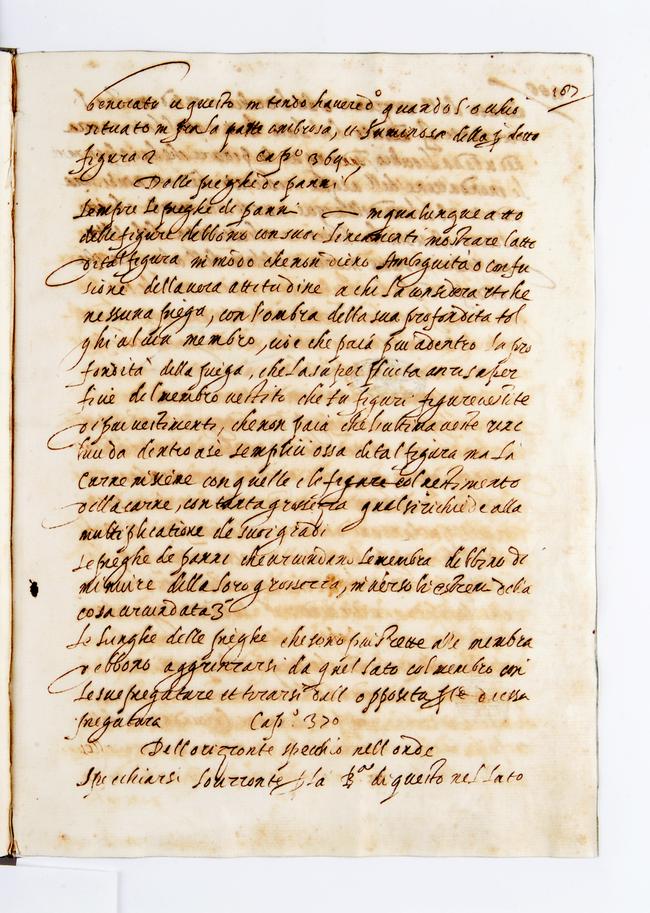 187
generato et questo intendo havere d.º quando l'ochio
situato in fra la parte ombrosa, et luminosa della p. detta
figura 2 Cap.º 369
Delle pieghe de panni
Sempre le pieghe de panni in qualunque atto
delle figure debbono con suoi lineamenti mostrare l'atto
di tal figura in modo che non dieno Ambiguita o confu
sione della vera attitudine a chi la considera et che
nessuna piega, con l'ombra della sua profondita tol
ghi alcun membro, cioè che paia piu adentro la pro
fondita della piega, che la superficie
ficie del membro vestito che tu figuri figure vestite
di piu vestimenti, che non paia che l'ultima veste rinc
hiuda dentro a sè semplici ossa di tal figura ma la
carne insieme con quelle e le figure col vestimento
della carne, con tanta grossezza qual si richiede alla
multiplicatione de suoi gradi
Le pieghe de panni che circundano le membra debbono di
minuire della loro grossezza, inverso li estremi della
cosa circundata 3
Le lunghe delle pieghe che sono piu strette alle membra
debbono aggrinzarsi da quel lato col membro
le sue piegature et tirarsi dall'opposita p.te d'essa
piegatura Cap.º 370
Dell'orizzonte spechio nell'onde
Spechiarsi l'orizzonte p la di questo nel lato